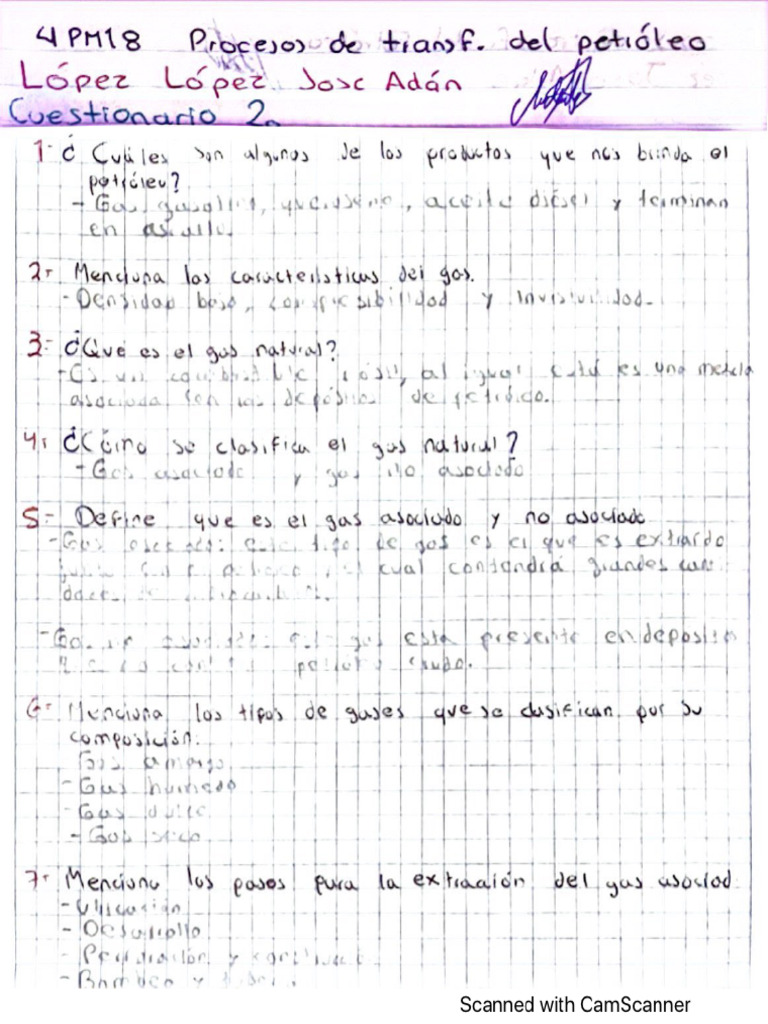 4PM18 Procesos de transf. del petróleo
López López Jose Adán
Cuestionario 2.
1- ¿Cuáles son algunos de los productos que nos brinda el
petróleo?
- Gas, gasolina, queroseno, aceite diésel y terminan
en asfalto.
2- Menciona las características del gas.
- Densidad baja, compresibilidad y invisividad.
3- ¿Qué es el gas natural?
- Es un combustible fósil, al igual es una mezcla
asociada con los depósitos de petróleo.
4- ¿Cómo se clasifica el gas natural?
- Gas asociado y gas no asociado
5- Define que es el gas asociado y no asociado
- Gas asociado: este tipo de gas es el que es extraido
cual contendrá grandes
- Gas no asociado: este gas esta presente en depositos
crudo.
6- Menciona los tipos de gases que se clasifican por su
composición.
Gas amargo
- Gas humedo
- Gas dulce
- Gas seco
7- Menciona los pasos para la extracción del gas asociad
- Ubicación
- Desarrollo
- Perforación y
- Bombeo y
Scanned with CamScanner